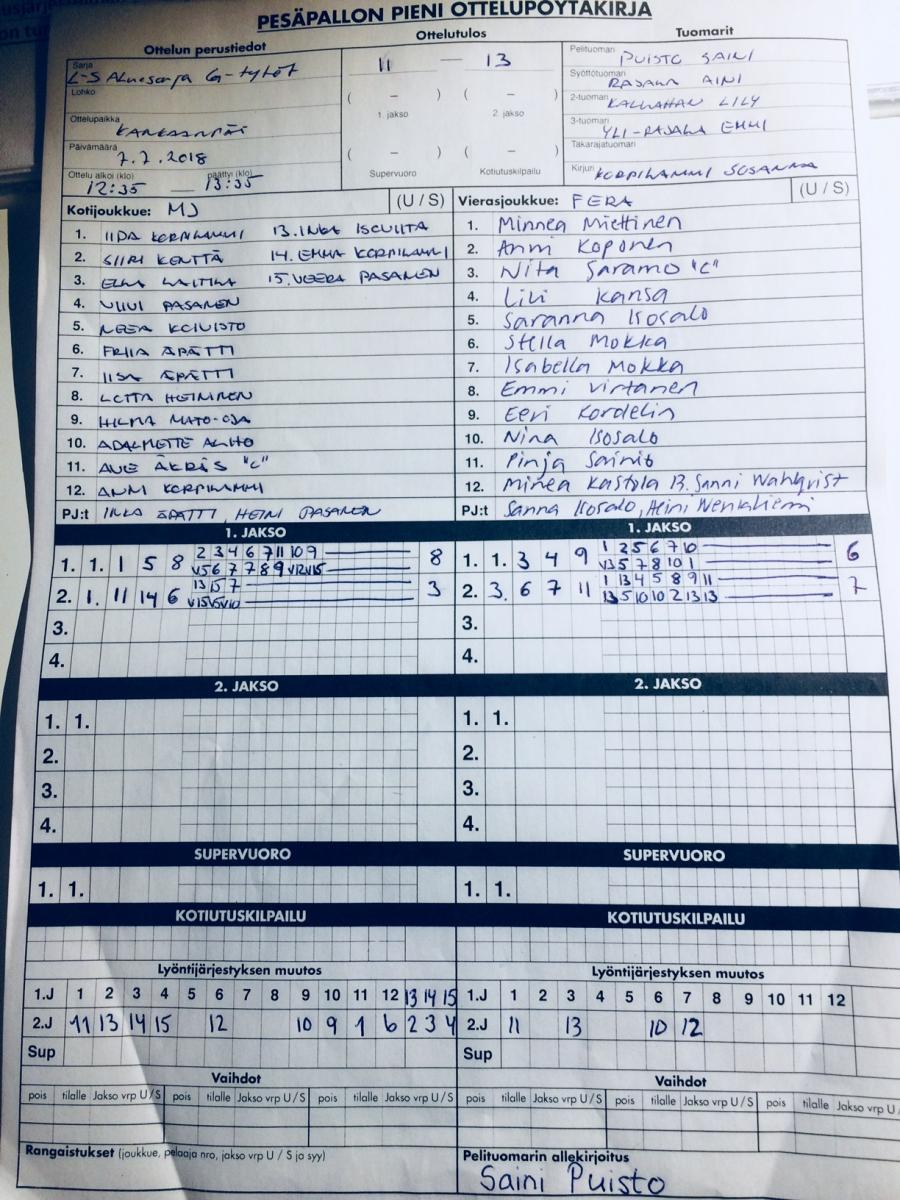 PESÄPALLON PIENI OTTELUPÖYTÄKIRJA
Ottelun perustiedot
Ottelutulos
Tuomarit
Sarja
L-S Aluesarja G-tytöt
Lohko
Ottelupaikka
KANKAANPÄÄ
Päivämäärä
7.7.2018
Ottelu alkoi (klo) päättyi (klo)
12:35 — 13:35
11 — 13
( – ) ( – )
1. jakso 2. jakso
( – ) ( – )
Supervuoro Kotiutuskilpailu
Pelituomari PUISTO SAINI
Syöttötuomari RAJALA AINI
2-tuomari KALLAHAN LILY
3-tuomari YLI-RAJALA EMMI
Takarajatuomari
Kirjuri KORPILAMMI SUSANNA
Kotijoukkue: MJ (U / S)
1. IIDA KORPILAMMI 13. INKA ISOVIITA
2. SIIRI KENTTÄ 14. EMMA KORPILAMMI
3. ELLA LAITILA 15. VEERA PASANEN
4. VIIVI PASANEN
5. NEEA KOIVISTO
6. FRIIA ÄPÄTTI
7. IISA ÄPÄTTI
8. LOTTA HEINONEN
9. HILMA MATO-OJA
10. AALHO
11. ÄKRÄS "C"
12. ANNI KORPILAMMI
PJ:t ÄPÄTTI, HEINI PASANEN
Vierasjoukkue: FERA (U / S)
1. Minnea Miettinen
2. Anni Koponen
3. Nita Saramo "C"
4. Livi Kansa
5. Saranna Isosalo
6. Stella Mokka
7. Isabella Mokka
8. Emmi Virtanen
9. Eevi Kordelin
10. Nina Isosalo
11. Pinja Sainio
12. Minea Kastola 13. Sanni Wahlqvist
PJ:t Sanna Isosalo, Heini
1. JAKSO
2 3 4 6 7 11 10 9
1. 1. 1 5 8 8
V5 6 7 7 8 9 V12 V15
13 15 7
2. 1. 11 14 6 3
V15 V5 V10
3.
4.
1. JAKSO
1 2 5 6 7 10
1. 1. 3 4 9 6
V3 5 7 8 10 1
1 13 4 5 8 9 11
2. 3. 6 7 11 7
13 5 10 10 2 13 13
3.
4.
2. JAKSO
1. 1.
2.
3.
4.
2. JAKSO
1. 1.
2.
3.
4.
SUPERVUORO
1. 1.
SUPERVUORO
1. 1.
KOTIUTUSKILPAILU
KOTIUTUSKILPAILU
Lyöntijärjestyksen muutos
1.J 1 2 3 4 5 6 7 8 9 10 11 12 13 14 15
2.J 11 13 14 15 12 10 9 1 6 2 3 4
Sup
Lyöntijärjestyksen muutos
1.J 1 2 3 4 5 6 7 8 9 10 11 12
2.J 11 13 10 12
Sup
Vaihdot
pois tilalle Jakso vrp U / S pois tilalle Jakso vrp U / S pois tilalle Jakso vrp U / S
Vaihdot
pois tilalle Jakso vrp U / S pois tilalle Jakso vrp U / S pois tilalle Jakso vrp U /
Rangaistukset (joukkue, pelaaja nro, jakso vrp U / S ja syy)
Pelituomarin allekirjoitus
Saini Puisto